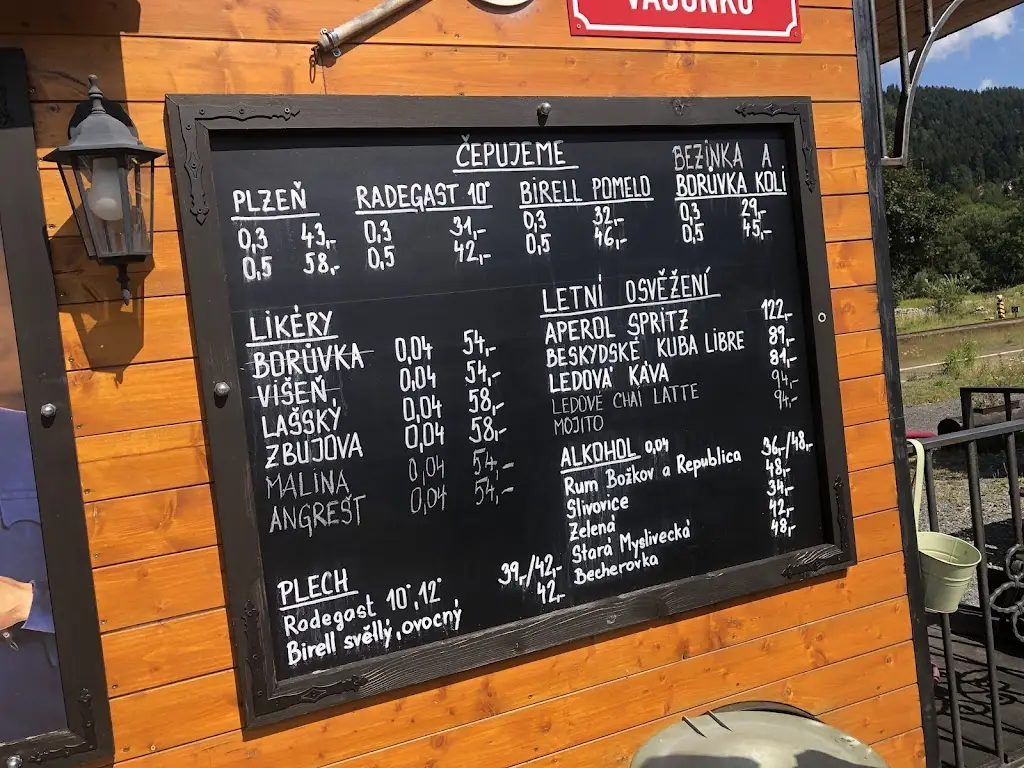 VAGÓNKU
ČEPUJEME
PLZEŇ
0,3 43,-
0,5 58,-
RADEGAST 10°
0,3 31,-
0,5 42,-
BIRELL POMELO
0,3 32,-
0,5 46,-
BEZINKA A
BORŮVKA KOLI
0,3 29,-
0,5 45,-
LIKÉRY
BORŮVKA 0,04 54,-
VIŠEŇ, 0,04 54,-
LAŠSKÝ 0,04 58,-
ZBUJOVA 0,04 58,-
MALINA 0,04 54,-
ANGREŠT 0,04 54,-
LETNÍ OSVĚŽENÍ
APEROL SPRITZ 122,-
BESKYDSKÉ KUBA LIBRE 89,-
LEDOVÁ KÁVA 81,-
LEDOVE CHAI LATTE 94,-
MOJITO 94,-
ALKOHOL 0,04
Rum Božkov a Republica 36,-/48,-
Slivovice 48,-
Zelená 34,-
Stará Myslivecká 42,-
Becherovka 48,-
PLECH
Radegast 10°, 12°, 39,-/42,-
Birell světlý, ovocný 42,-